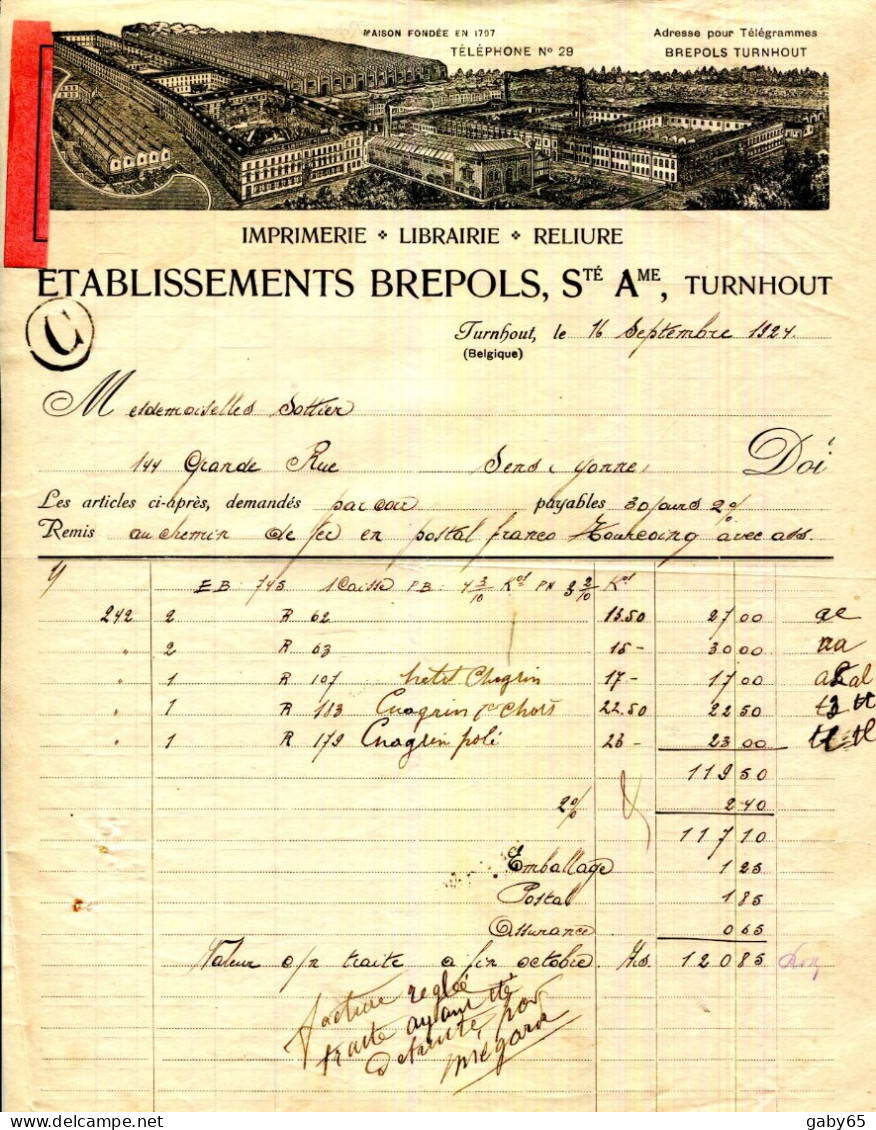 MAISON FONDÉE EN 1797
TÉLÉPHONE No 29
Adresse pour Télégrammes
BREPOLS TURNHOUT
IMPRIMERIE ❖ LIBRAIRIE ❖ RELIURE
ETABLISSEMENTS BREPOLS, STÉ AME, TURNHOUT
C
Turnhout, le 16 Septembre 1924.
(Belgique)
Mesdemoiselles Sottier
144 Grande Rue Sens (Yonne) Doit
Les articles ci-après, demandés par corr payables 30 jours 2%
Remis au chemin de fer en postal franco Tourcoing avec ass.
EB: 745 1 Caisse PB: 4 3/10 Kos PN 3 2/10 Kos
242 2 R 62 13.50 27 00 ae
" 2 R 63 15- 30 00 na
" 1 R 107 petit Chagrin 17- 17 00
" 1 R 183 Chagrin 1er Choix 22.50 22 50
" 1 R 179 Chagrin poli 23- 23 00
119 50
2% 2 40
117 10
Emballage 1 25
Postal 1 85
Assurance 0 65
Valeur o/n traite a fin octobre. Frs. 120 85
facture reglée
traite ayant été
détruite par
mégarde
gaby65